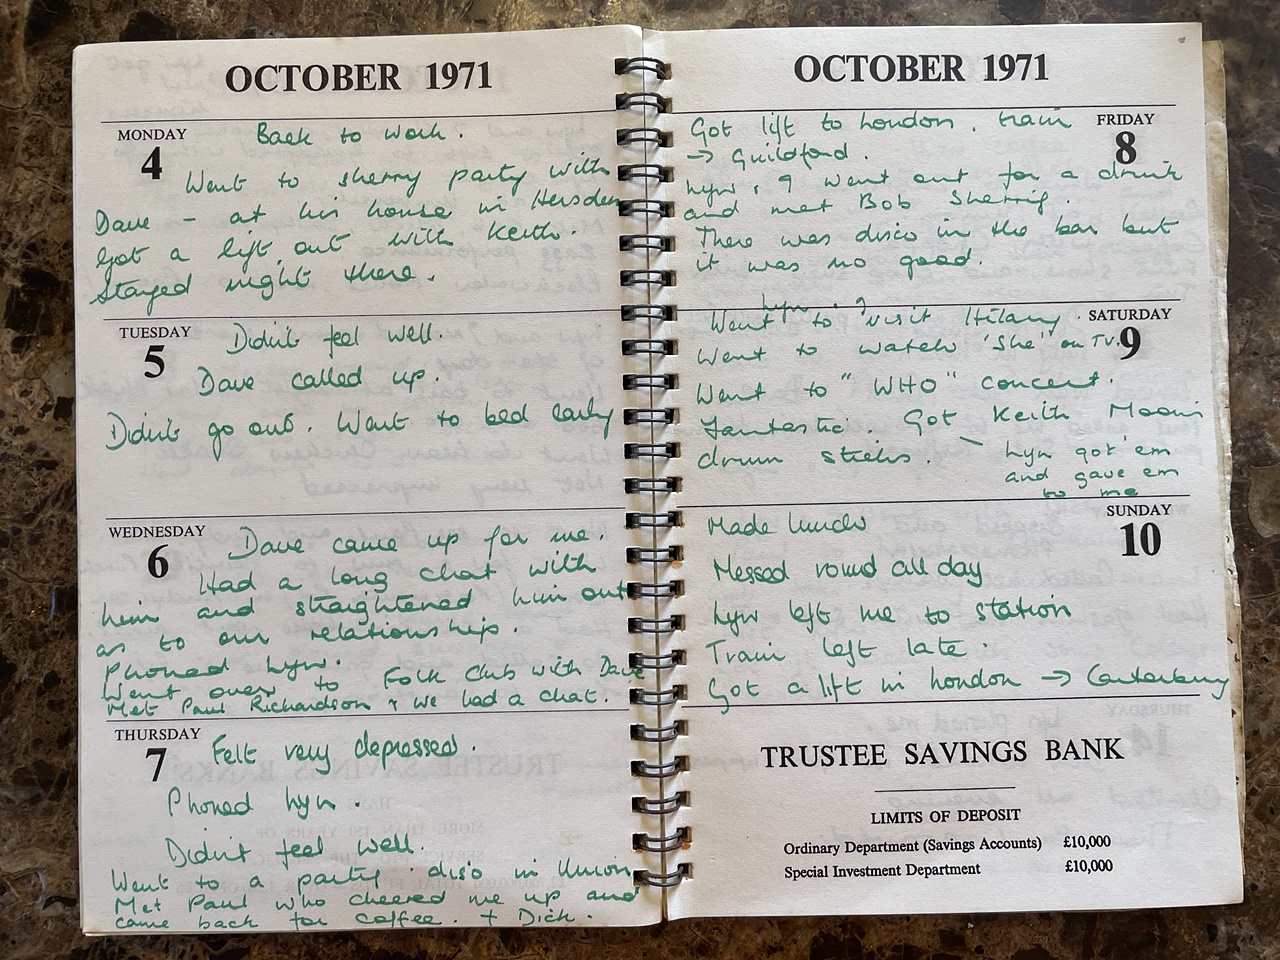 OCTOBER 1971
MONDAY
4
Back to work.
Went to sherry party with
Dave - at his house in Hersden
Got a lift out with Keith.
Stayed night there.
TUESDAY
5
Didn't feel well.
Dave called up.
Didn't go out. Went to bed early
WEDNESDAY
6
Dave came up for me.
Had a long chat with
him and straightened him out
as to our relationship.
Phoned Lyn.
Went over to Folk Club with Dave
Met Paul Richardson & we had a chat.
THURSDAY
7
Felt very depressed.
Phoned Lyn.
Didn't feel well.
Went to a party. disco in Union
Met Paul who cheered me up and
came back for coffee. + Dick.
OCTOBER 1971
FRIDAY
8
Got lift to London. train
→ Guildford.
Lyn & I went out for a drink
and met Bob Sherrif.
There was disco in the bar but
it was no good.
SATURDAY
9
Lyn & I
Went to visit Hilary.
Went to watch 'She' on TV.
Went to "WHO" concert.
Fantastic. Got Keith Moon's
drum sticks. Lyn got 'em
and gave em
to me
SUNDAY
10
Made lunch
Messed round all day
Lyn left me to station
Train left late.
Got a lift in London → Canterbury
TRUSTEE SAVINGS BANK
LIMITS OF DEPOSIT
Ordinary Department (Savings Accounts) £10,000
Special Investment Department £10,000